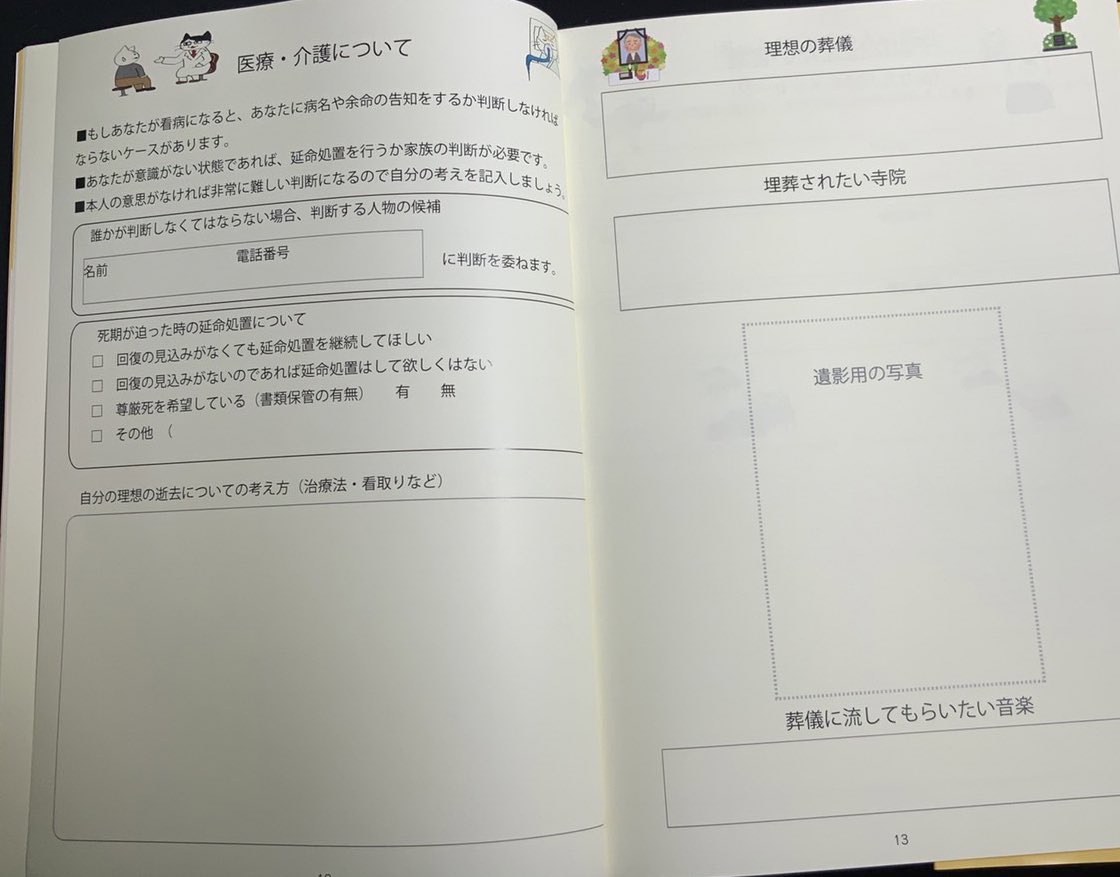 医療・介護について
■もしあなたが看病になると、あなたに病名や余命の告知をするか判断しなければ
ならないケースがあります。
■あなたが意識がない状態であれば、延命処置を行うか家族の判断が必要です。
■本人の意思がなければ非常に難しい判断になるので自分の考えを記入しましょう。
誰かが判断しなくてはならない場合、判断する人物の候補
名前 電話番号
に判断を委ねます。
死期が迫った時の延命処置について
□ 回復の見込みがなくても延命処置を継続してほしい
□ 回復の見込みがないのであれば延命処置はして欲しくはない
□ 尊厳死を希望している（書類保管の有無） 有 無
□ その他 （
自分の理想の逝去についての考え方（治療法・看取りなど）
理想の葬儀
埋葬されたい寺院
遺影用の写真
葬儀に流してもらいたい音楽
13